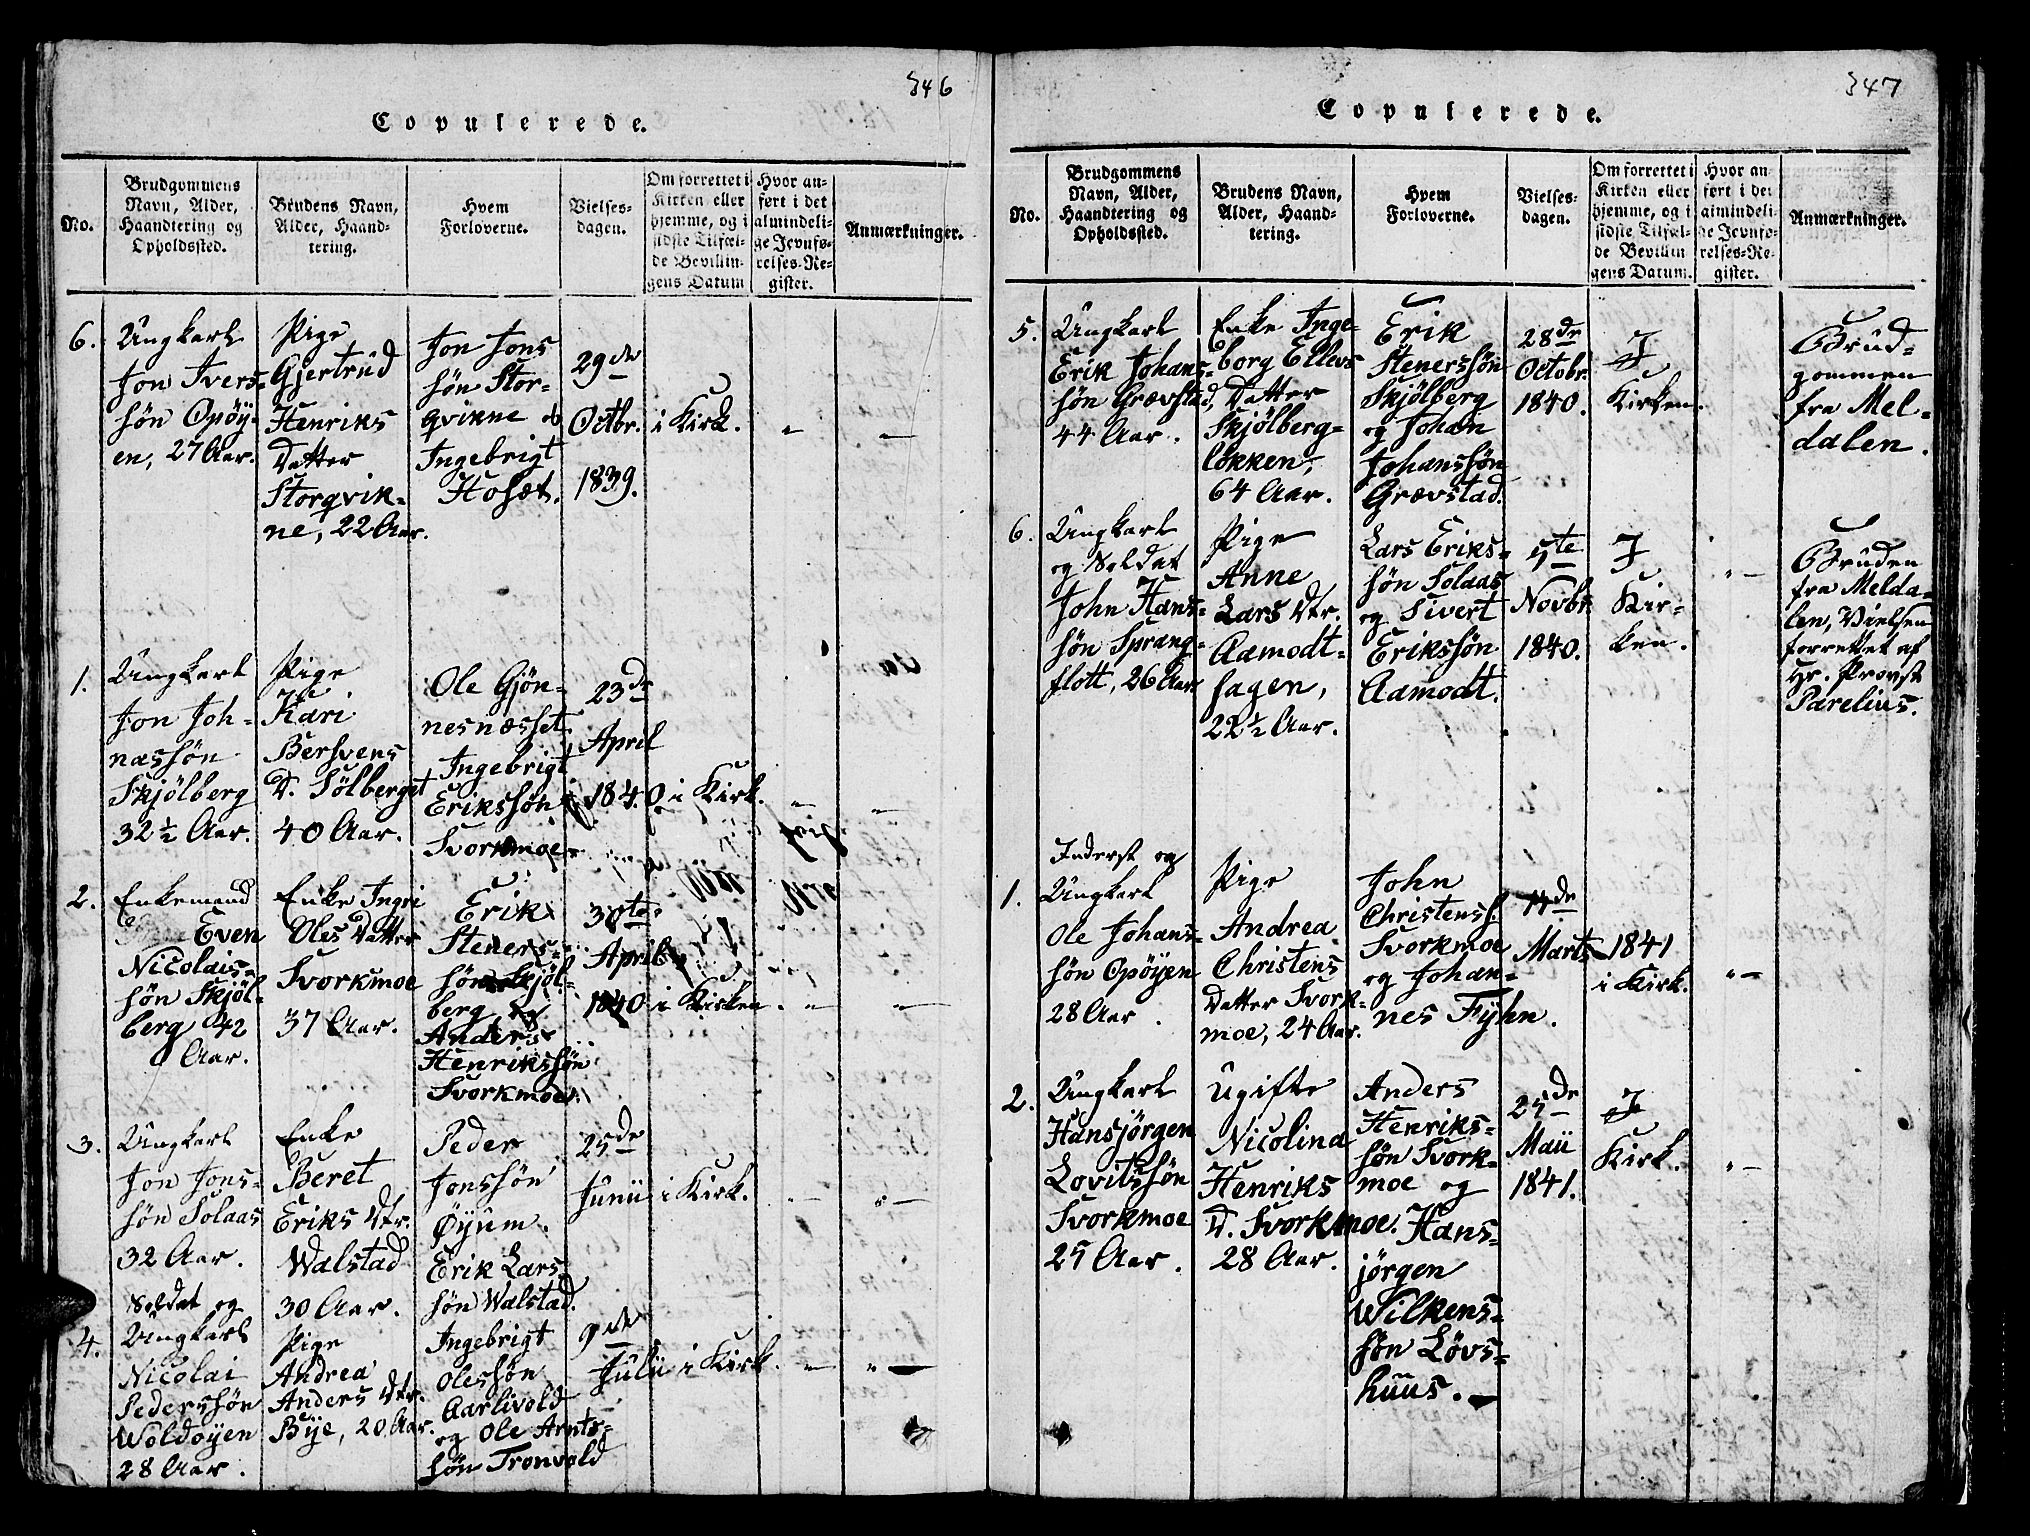 346
Copulerede.
No.
Brudgommens
Navn, Alder,
Haandtering og
Opholdssted.
Brudens Navn,
Alder, Haand-
tering.
Hvem
Forloverne.
Vielses-
dagen.
Om forrettet i
Kirken eller
hjemme, og i
sidste Tilfæl-
de Bevillin-
gens Datum
Hvor an-
ført i det
almindeli-
ge Jevnfø-
relses-Re-
gister.
Anmærkninger.
6.
Ungkarl
Jon Ivers-
søn Opøy-
en, 27 Aar.
Pige
Gjertrüd
Henriks
Datter
Storqvik-
ne, 22 Aar.
Jon Jons
søn Stor-
qvikne &
Ingebrigt
Hosæt.
29de
Octbr.
1839.
i Kirk.
1.
Ungkarl
Jon Joh-
nassøn
Skjølberg
32½ Aar.
Pige
Kari
Bersvens
D. Sølberget
40 Aar.
Ole Gjøn-
nesnæsset
Ingebrigt
Erikssøn
Svorkmoe
23de
April
1840.
i Kirk.
2.
Enkemand
Even
Nicolais-
søn Skjøl-
berg 42
Aar.
Enke Ingri
Oles Datter
Svorkmoe
37 Aar.
Erik
Steners-
søn Skjøl-
berg, og
Anders
Henrikssøn
Svorkmoe.
30te
April
1840
i Kirken
3.
Ungkarl
Jon Jons-
søn Solaas
32 Aar.
Enke
Beret
Eriks Dtr.
Walstad
30 Aar.
Peder
Jonssøn
Øyum.
Erik Lars
søn Walstad.
25de
Junii
i Kirk.
4.
Soldat og
Ungkarl
Nicolai
Pederssøn
Woldøyen
28 Aar.
Pige
Andrea
Anders Dtr.
Bye, 20 Aar.
Ingebrigt
Olessøn
Aarlivold
og Ole Arnts-
søn Tronvold
9de
Julii
i Kirk.
347
Copulerede.
No.
Brudgommens
Navn, Alder,
Haandtering og
Opholdssted.
Brudens Navn,
Alder, Haand-
tering.
Hvem
Forloverne.
Vielses-
dagen.
Om forrettet i
Kirken eller
hjemme, og i
sidste Tilfæl-
de Bevillin
gens Datum.
Hvor an-
ført i det
almindeli-
de Jevnfø-
relses-Re-
gister.
Anmærkninger.
5.
Ungkarl
Erik Johans-
søn Grævstad,
44 Aar.
Enke Inge-
borg Ellevs
Datter
Skjølberg-
løkken,
64 Aar.
Erik
Stenerssøn
Skjølberg
og Johan
Johanssøn
Grævstad.
28de
Octobr.
1840.
I
Kirken.
Brüd-
gommen
fra Mel-
dalen.
6.
Ungkarl
og Soldat
John Hans-
søn Sprang-
flott, 26 Aar.
Pige
Anne
Lars Dtr.
Aamodt-
hagen,
22½ Aar.
Lars Eriks-
søn Solaas
og Sivert
Erikssøn
Aamodt.
5te
Novbr.
1840.
I
Kir-
ken.
Brüden
fra Melda-
len, Vielsen
forrettet af
Hr. Provst
Parelius.
1.
Inderst og
Ungkarl
Ole Johans-
søn Opøyen
28 Aar.
Pige
Andrea
Christens
Datter Svork-
moe, 24 Aar.
John
Christens.
Svorkmoe
og Johan-
nes Fyhn.
Marts 1841
i Kirk.
2.
Ungkarl
Hansjörgen
Lovitssøn
Svorkmoe
25 Aar.
Ugifte
Nicolina
Henriks
D. Svorkmoe.
28 Aar.
Anders
Henriks-
søn Svork-
moe og
Hans-
jörgen
Wilkens-
søn Løvs-
huus.
25de
Maii
1841.
I
Kirk.